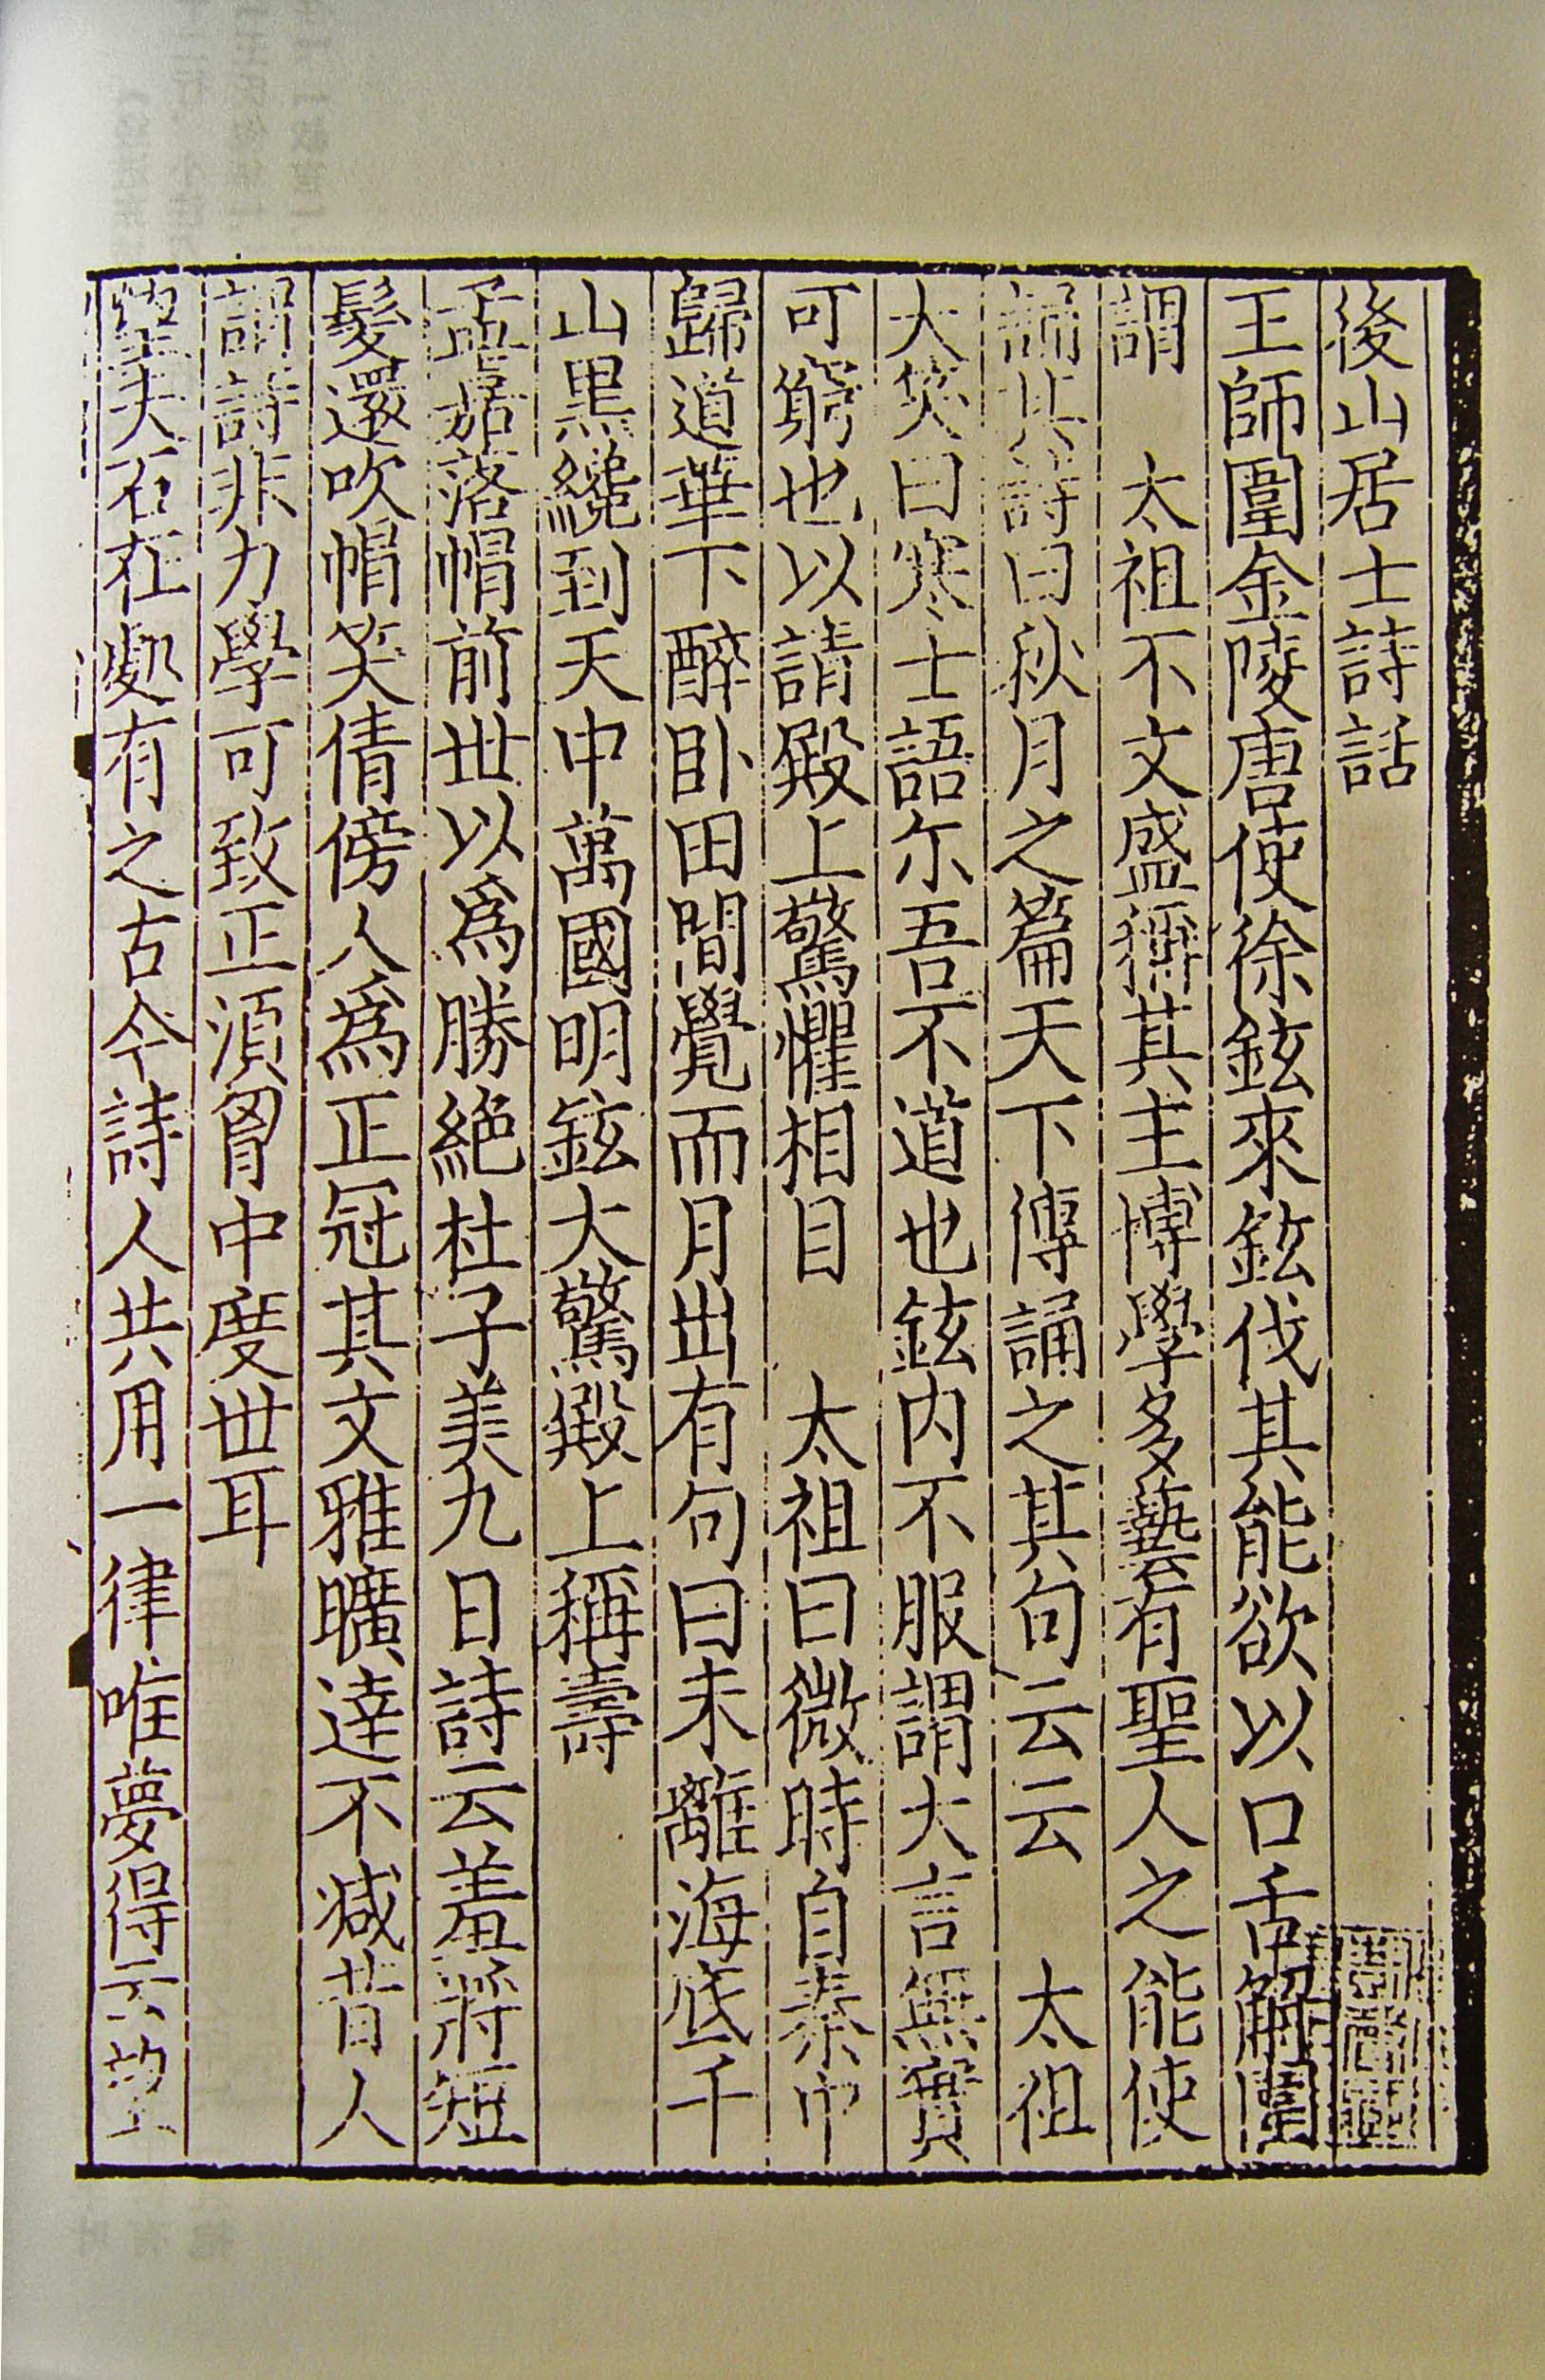 後山居士詩話
王師圍金陵唐使徐鉉來鉉伐其能欲以口舌解圍
謂　太祖不文盛稱其主博學多藝有聖人之能使
誦其詩曰秋月之篇天下傳誦之其句云云　太祖
大笑曰寒士語尓吾不道也鉉内不服謂大言無實
可窮也以請殿上驚懼相目　太祖曰微時自秦中
歸道華下醉卧田間覺而月出有句曰未離海底千
山黒纔到天中萬國明鉉大驚殿上稱壽
孟嘉落帽前世以爲勝絶杜子美九日詩云羞將短
髮還吹帽笑倩傍人爲正冠其文雅曠逹不减昔人
詩非力學可致正須胷中度世耳
望夫石在處有之古今詩人共用一律唯夢得云